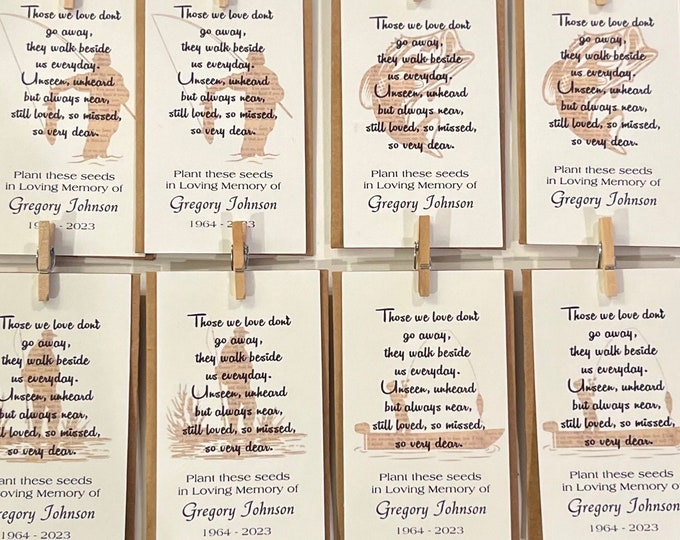 Those we love don't
go away,
they walk beside
us everyday.
Unseen, unheard
but always near,
still loved, so missed,
so very dear.
Plant these seeds
in Loving Memory of
Gregory Johnson
2023
Those we love don't
go away,
they walk beside
us everyday.
Unseen, unheard
but always near,
still loved, so missed,
so very dear.
Plant these seeds
in Loving Memory of
Gregory Johnson
1964 -
Those we love don't
go away,
they walk beside
us everyday.
Unseen, unheard
but always near,
still loved, so missed,
so very dear.
Plant these seeds
in Loving Memory of
Gregory Johnson
Those we love don't
go away,
they walk beside
us everyday.
Unseen, unheard
but always near,
still loved, so missed,
so very dear.
Plant these seeds
in Loving Memory of
Gregory Johnson
Those we love don't
go away,
they walk beside
us everyday.
Unseen, unheard
but always near,
loved, so missed,
so very dear.
Plant these seeds
in Loving Memory of
Gregory Johnson
1964 - 2023
Those we love don't
go away,
they walk beside
us everyday.
Unseen, unheard
but always near,
still loved, so missed,
so very dear.
Plant these seeds
in Loving Memory of
Gregory Johnson
1964 - 2023
Those we love don't
go away,
they walk beside
us everyday.
Unseen, unheard
but always near,
still loved, so missed,
so very dear.
Plant these seeds
in Loving Memory of
Gregory Johnson
1964 - 2023
Those we love don't
go away,
they walk beside
us everyday.
Unseen, unheard
but always near,
still loved, so missed,
so very dear.
Plant these seeds
in Loving Memory of
Gregory Johnson
1964 - 2023